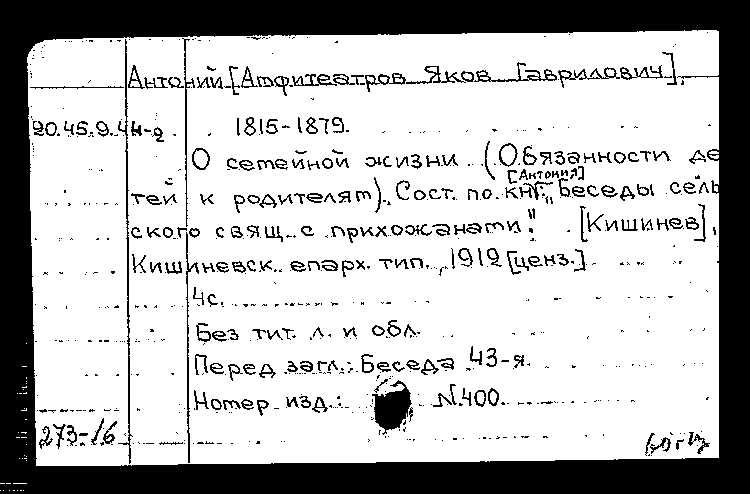 Антоний [Амфитеатров Яков Гаврилович],
20.45.9.44-2 1815-1879.
О семейной жизни. (Обязанности де
тей к родителям). Сост. по кн. [Антония] „Беседы сель
ского свящ. с прихожанами". [Кишинев],
Кишиневск. епарх. тип., 1912 [ценз.]
4с.
Без тит. л. и обл.
Перед загл.: Беседа 43-я.
Номер изд.: N400.
273-16